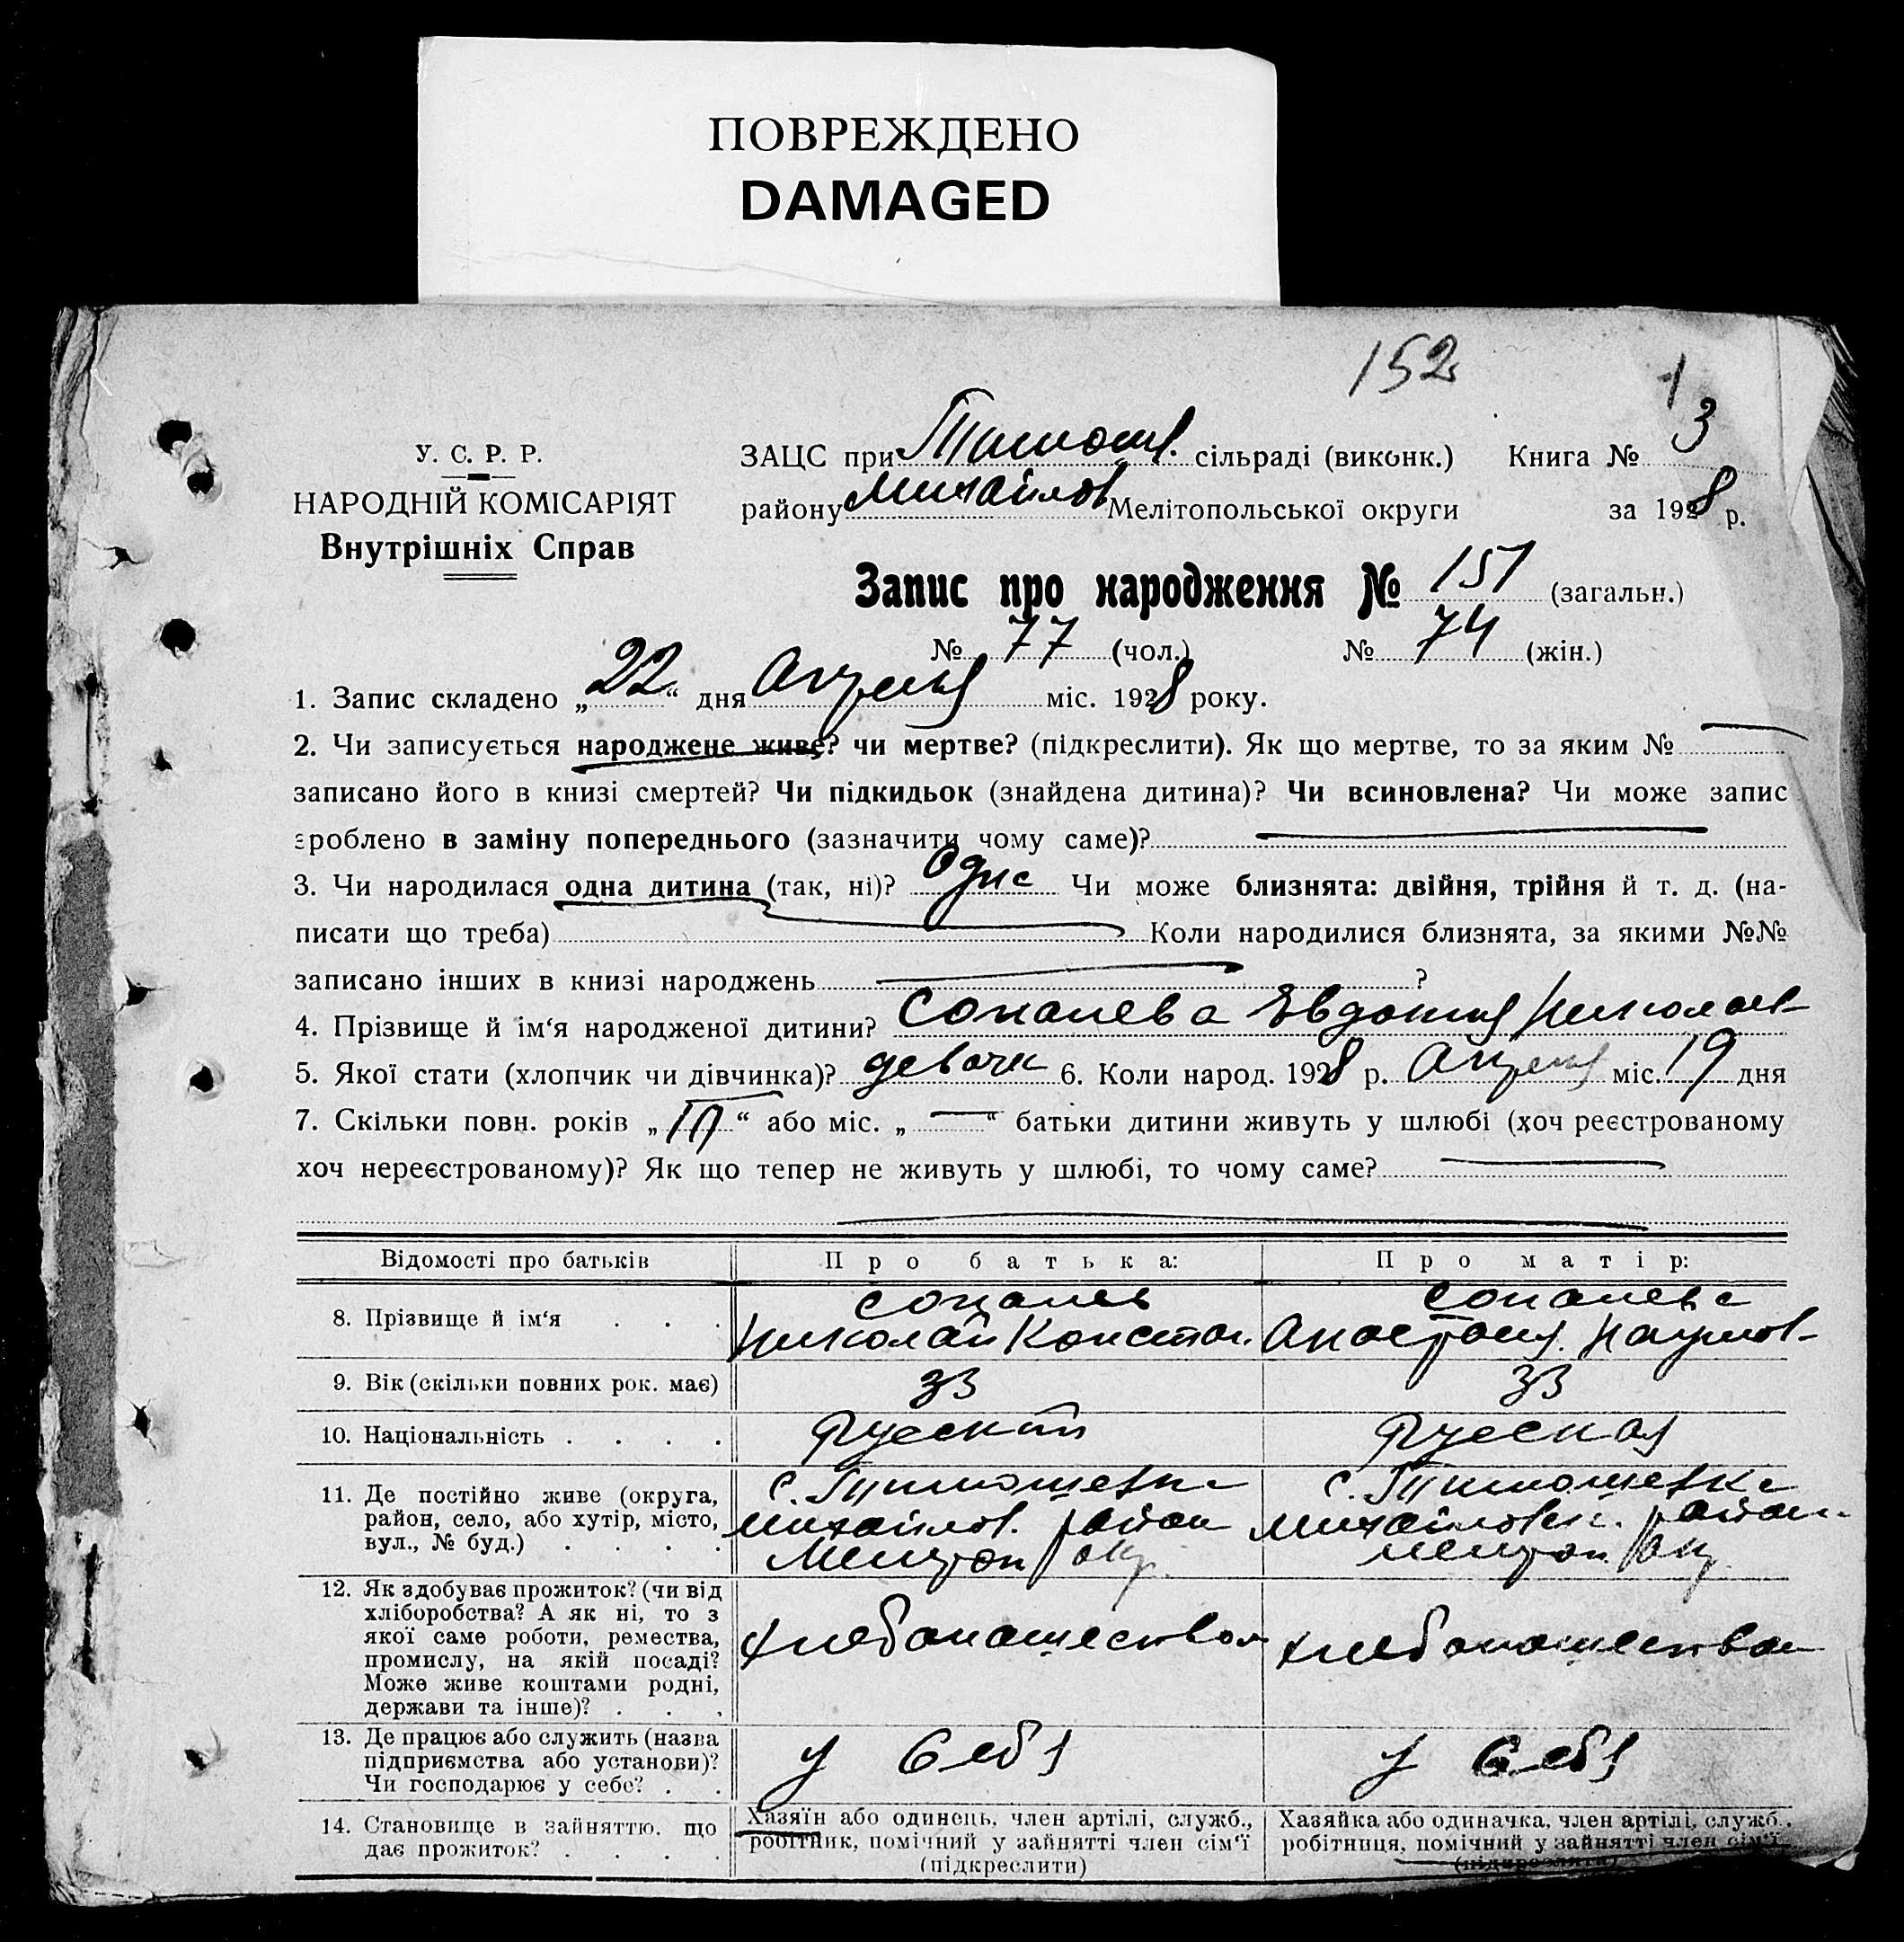 ПОВРЕЖДЕНО
DAMAGED
152
1
У. С. Р. Р.
НАРОДНІЙ КОМІСАРІЯТ
Внутрішніх Справ
ЗАЦС при Тимош. сільраді (виконк.) Книга № 3
району Михайлов Мелітопольської округи за 1928 р.
Запис про народження № 151 (загальн.)
№ 77 (чол.) № 74 (жін.)
1. Запис складено „22“ дня Апреля міс. 1928 року.
2. Чи записується народжене живе? чи мертве? (підкреслити). Як що мертве, то за яким №
записано його в книзі смертей? Чи підкидьок (знайдена дитина)? Чи всиновлена? Чи може запис
зроблено в заміну попереднього (зазначити чому саме)?
3. Чи народилася одна дитина (так, ні)? Чи може близнята: двійня, трійня й т. д. (на-
писати що треба) Коли народилися близнята, за якими №№
записано інших в книзі народжень ?
4. Прізвище й ім‘я народженої дитини? Евдокия Николаев
5. Якої стати (хлопчик чи дівчинка)? девочк 6. Коли народ. 1928 р. Апреля міс. 19 дня
7. Скільки повн. років „ “ або міс. „ “ батьки дитини живуть у шлюбі (хоч реєстрованому
хоч нереєстрованому)? Як що тепер не живуть у шлюбі, то чому саме?
Відомості про батьків Про батька: Про матір:
8. Прізвище й ім‘я . . .
Николай Констан. Анастасия Наумов
9. Вік (скільки повних рок. має) 33 33
10. Національність . . . . Русский Русская
11. Де постійно живе (округа,
район, село, або хутір, місто,
вул., № буд.) . . . .
с. Тимошевка
Михайлов. район
Мелитоп окр.
с. Тимошевка
Михайловск. район
Мелитоп окр.
12. Як здобуває прожиток? (чи від
хліборобства? А як ні, то з
якої саме роботи, ремества,
промислу, на якій посаді?
Може живе коштами родні,
держави та інше)? . . .
хлебопашеством хлебопашеством
13. Де працює або служить (назва
підприємства або установи)?
Чи господарює у себе? . .
у себя у себя
14. Становище в зайняттю, що
дає прожиток? . . . .
Хазяїн або одинець, член артілі, служб.,
робітник, помічний у зайнятті член сім‘ї
(підкреслити)
Хазяйка або одиначка, член артілі, служб.,
робітниця, помічний у зайнятті член сім‘ї
(підкреслити)